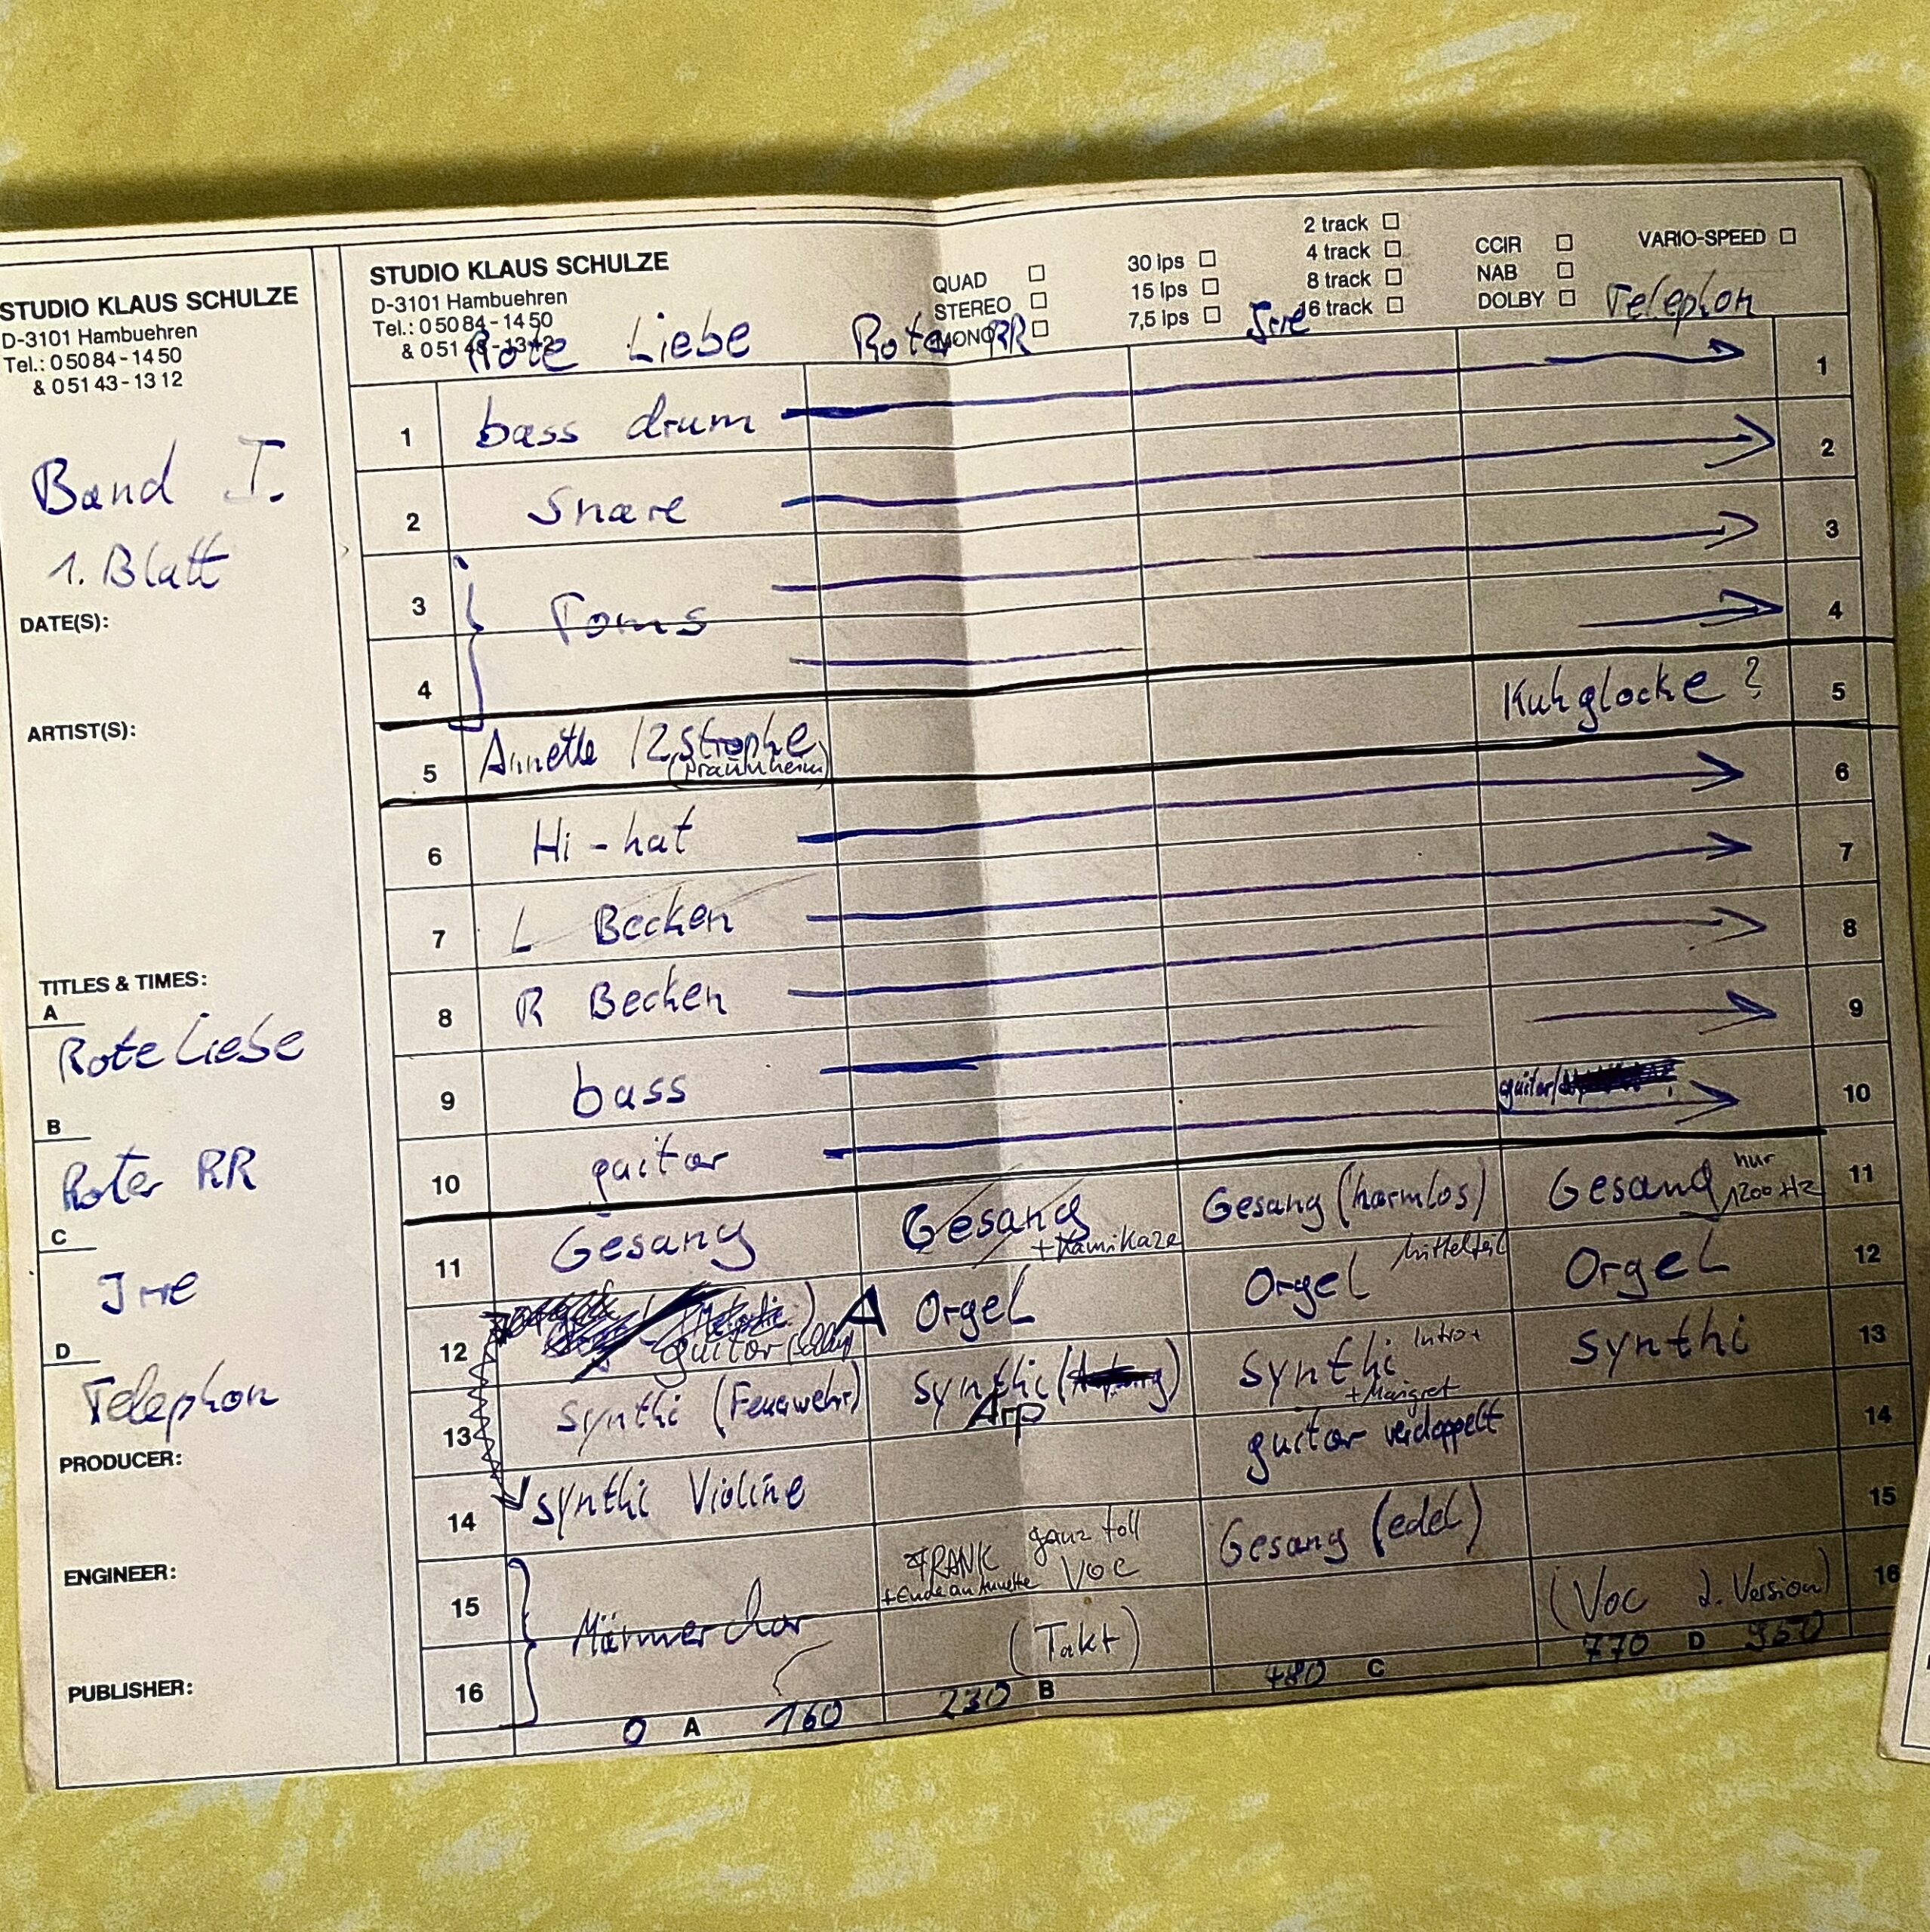 STUDIO KLAUS SCHULZE
D-3101 Hambuehren
Tel.: 0 50 84 - 14 50
& 0 51 43 - 13 12
Band I.
1. Blatt
DATE(S):
ARTIST(S):
TITLES & TIMES:
A
Rote Liebe
B
Roter RR
C
Irre
D
Telephon
PRODUCER:
ENGINEER:
PUBLISHER:
STUDIO KLAUS SCHULZE
D-3101 Hambuehren
Tel.: 0 50 84 - 14 50
& 0 51 43 - 13 12
QUAD
STEREO
MONO
30 ips
15 ips
7,5 ips
2 track
4 track
8 track
16 track
CCIR
NAB
DOLBY
VARIO-SPEED
Rote Liebe Roter RR Irre Telephon
1 bass drum 1
2 Snare 2
3 Toms 3
4 4
5 Annette 12 strophe Kuhglocke ? 5
6 Hi-hat 6
7 L Becken 7
8 R Becken 8
9 bass 9
10 guitar guitar/ 10
11 Gesang Gesang + Kamikaze Gesang (harmlos) Gesang nur 1200 Hz 11
12 guitar A Orgel Orgel Mittelteil Orgel 12
13 Synthi (Feuerwehr) Synthi Arp Synthi Intro + + Margret Synthi 13
14 Synthi Violine guitar verdoppelt 14
15 Männerchor FRANK ganz toll Voc + Ende an Annette Gesang (edel) 15
16 (Takt) (Voc 2. Version) 16
0 A 160 230 B 480 C 770 D 950